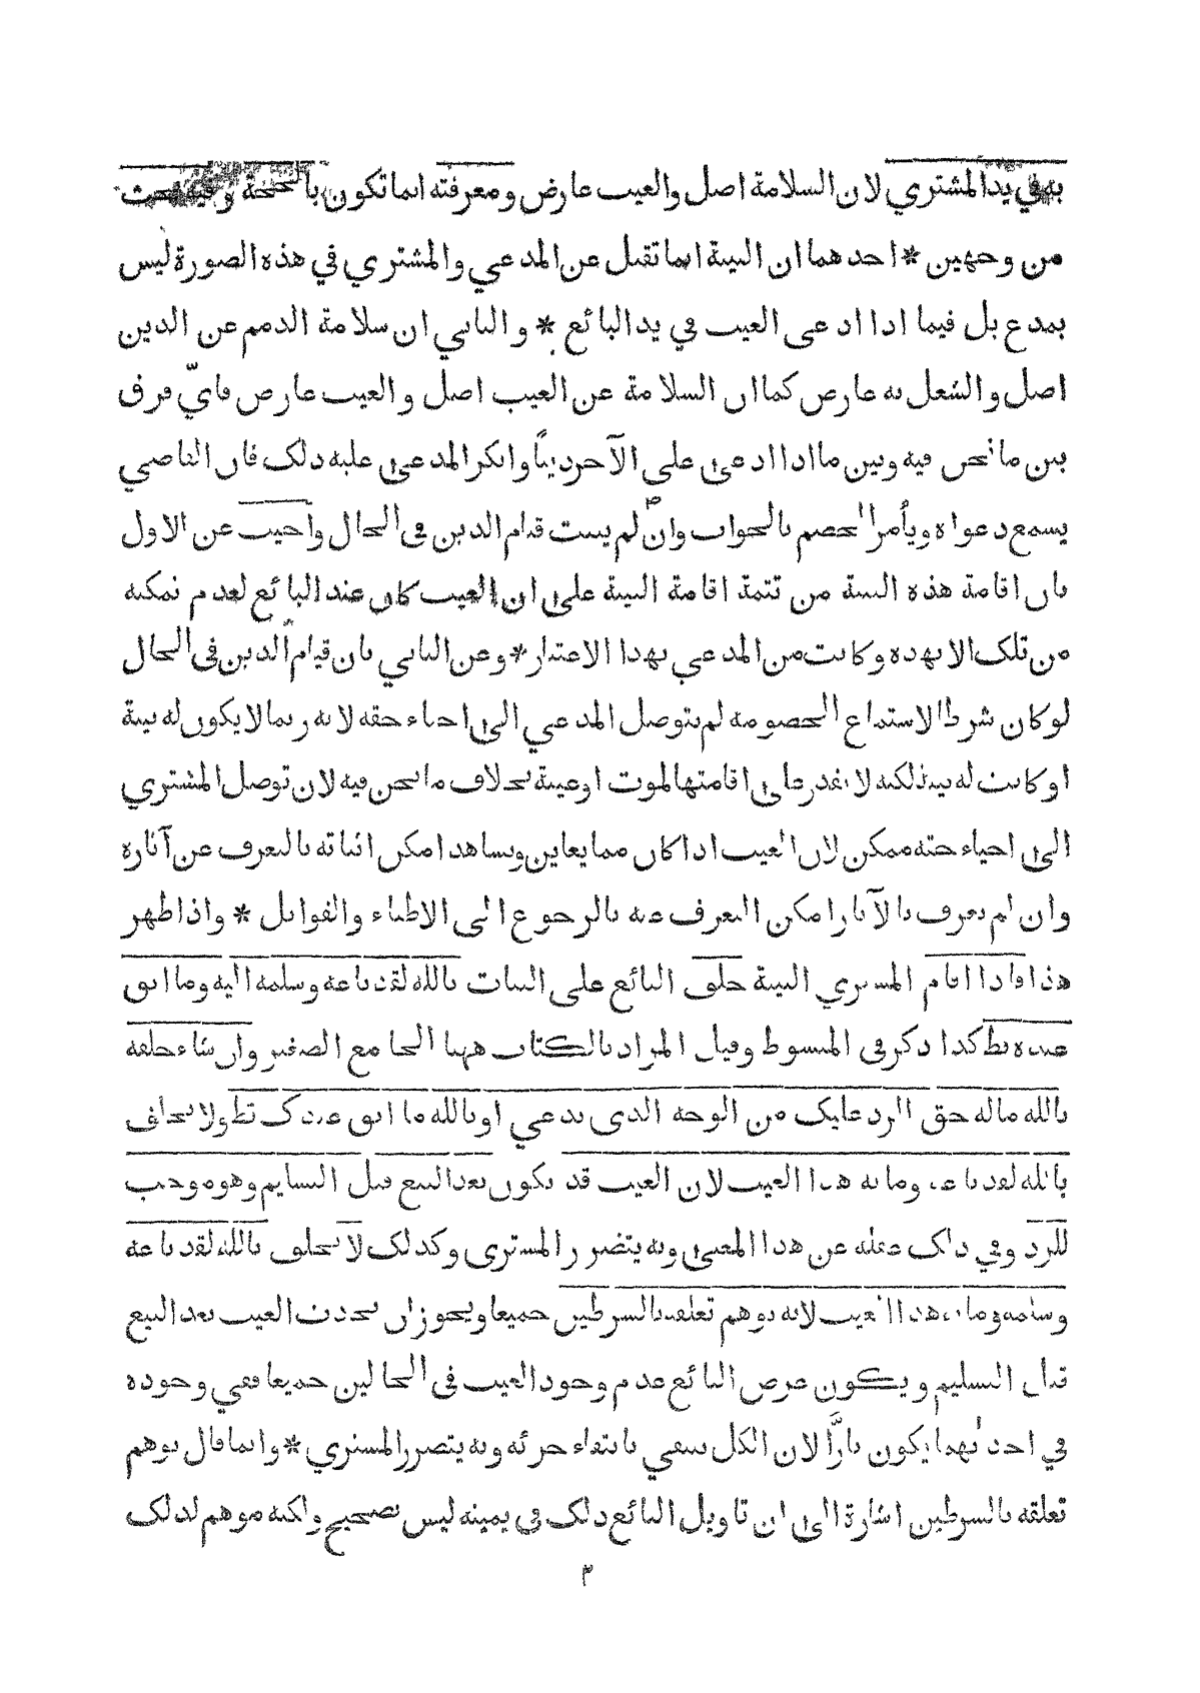 به في يد المشتري لان السلامة اصل والعيب عارض ومعرفته انما تكون بالحجة وفيه بحث
من وجهين * احدهما ان البينة انما تقبل عن المدعي والمشتري في هذه الصورة ليس
بمدع بل فيما اذا ادعى العيب في يد البائع * والثاني ان سلامة الذمم عن الدين
اصل والشغل به عارض كما ان السلامة عن العيب اصل والعيب عارض فايّ فرق
بين ما نحن فيه وبين ما اذا ادعى على الآخر دينًا وانكر المدعى عليه ذلك فان القاضي
يسمع دعواه ويأمر الخصم بالجواب وان لم يثبت قيام الدين في الحال واجيب عن الاول
بان اقامة هذه البينة من تتمة اقامة البينة على ان العيب كان عند البائع لعدم تمكنه
من تلك الا بهذه وكانت من المدعي بهذا الاعتبار * وعن الثاني بان قيام الدين في الحال
لو كان شرط الاستماع الخصومة لم يتوصل المدعي الى احياء حقه لانه ربما لا يكون له بينة
او كانت له بينة لكنه لا يقدر على اقامتها لموت او غيبة بخلاف ما نحن فيه لان توصل المشتري
الى احياء حقه ممكن لان العيب اذا كان مما يعاين ويشاهد امكن اثباته بالتعرف عن آثاره
وان لم يعرف بالآثار امكن التعرف عنه بالرجوع الى الاطباء والقوابل * واذا ظهر
هذا فاذا اقام المشتري البينة حلف البائع على البتات بالله لقد باعه وسلمه اليه وما ابق
عنده قط كذا ذكر في المبسوط وقيل المراد بالكتاب ههنا الجامع الصغير وان شاء حلفه
بالله ماله حق الرد عليك من الوجه الذي يدعي او بالله ما ابق عندك قط ولا يحلف
بالله لقد باعه وما به هذا العيب لان العيب قد يكون بعد البيع قبل التسليم وهو موجب
للرد وفي ذلك غفلة عن هذا المعنى وبه يتضرر المشتري وكذلك لا يحلف بالله لقد باعه
وسلمه وما به هذا العيب لانه يوهم تعلقه بالشرطين جميعا ويجوز ان يحدث العيب بعد البيع
قبل التسليم ويكون غرض البائع عدم وجود العيب في الحالين جميعا ففي وجوده
في احدٰيهما يكون بارًّا لان الكل ينتفي بانتفاء جزئه وبه يتضرر المشتري * وانما قال يوهم
تعلقه بالشرطين اشارة الى ان تاويل البائع ذلك في يمينه ليس بصحيح ولكنه موهم لذلك
٣